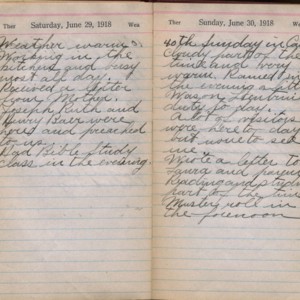 Ther
Saturday, June 29, 1918
Wea
Weather warm.
Working in the
kitchen and busy
most all day.
Received a letter
from Mother.
Glenn Ruth and
Henry Baer were
here and preached
to us.
Had Bible Study
class in the evening.
Ther
Sunday, June 30, 1918
Wea
40th Sunday in Ca
Cloudy part of the
time and very
warm. Rained in
the evening
Mason
duty to day.
A lot of visitors
were here to day
but none to see
me.
Wrote a letter to
Laura and
Reading and study
part of the time
Muster role in
the forenoon